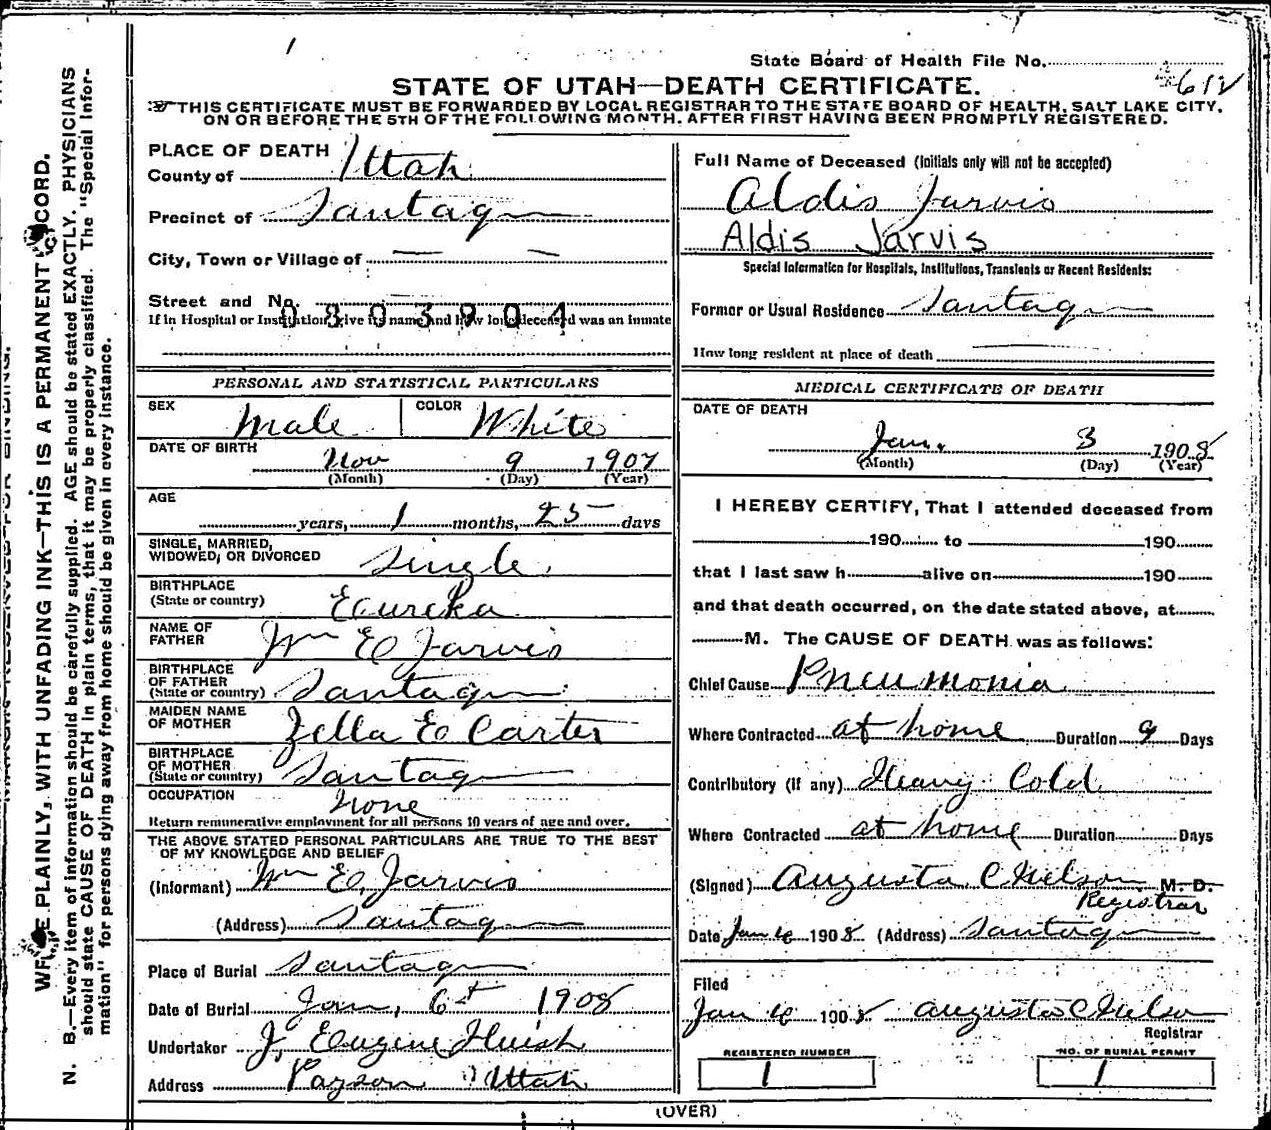 State Board of Health File No.
612
STATE OF UTAH—DEATH CERTIFICATE.
THIS CERTIFICATE MUST BE FORWARDED BY LOCAL REGISTRAR TO THE STATE BOARD OF HEALTH, SALT LAKE CITY,
ON OR BEFORE THE 5TH OF THE FOLLOWING MONTH, AFTER FIRST HAVING BEEN PROMPTLY REGISTERED.
PLACE OF DEATH
County of Utah
Precinct of Santaquin
City, Town or Village of — —
Street and No.
0303904
If in Hospital or Institution give its name and how long deceased was an inmate
PERSONAL AND STATISTICAL PARTICULARS
SEX Male COLOR White
DATE OF BIRTH
Nov 9 1907
(Month) (Day) (Year)
AGE
years, 1 months, 25 days
SINGLE, MARRIED,
WIDOWED, OR DIVORCED Single
BIRTHPLACE
(State or country) Eureka
NAME OF
FATHER Wm E Jarvis
BIRTHPLACE
OF FATHER
(State or country) Santaquin
MAIDEN NAME
OF MOTHER Zella E Carter
BIRTHPLACE
OF MOTHER
(State or country) Santaquin
OCCUPATION None
Return remunerative employment for all persons 10 years of age and over.
THE ABOVE STATED PERSONAL PARTICULARS ARE TRUE TO THE BEST
OF MY KNOWLEDGE AND BELIEF
(Informant) Wm E. Jarvis
(Address) Santaquin
Place of Burial Santaquin
Date of Burial Jan, 6th 1908
Undertaker J. Eugene Huish
Address Payson Utah
Full Name of Deceased (Initials only will not be accepted)
Aldis Jarvis
Aldis Jarvis
Special Information for Hospitals, Institutions, Transients or Recent Residents:
Former or Usual Residence Santaquin
How long resident at place of death
MEDICAL CERTIFICATE OF DEATH
DATE OF DEATH
Jan. 3 1908
(Month) (Day) (Year)
I HEREBY CERTIFY, That I attended deceased from
190 to 190
that I last saw h alive on 190
and that death occurred, on the date stated above, at
M. The CAUSE OF DEATH was as follows:
Chief Cause Pneumonia
Where Contracted at home Duration 9 Days
Contributory (if any) Heavy Cold
Where Contracted at home Duration Days
(Signed) Augusta C Nelson M. D.
Registrar
Date Jan 1908 (Address) Santaquin
Filed
Jan 1908 Augusta C Nelson
Registrar
REGISTERED NUMBER
1
NO. OF BURIAL PERMIT
1
(OVER)
WRITE PLAINLY, WITH UNFADING INK—THIS IS A PERMANENT RECORD.
N. B.—Every item of information should be carefully supplied. AGE should be stated EXACTLY. PHYSICIANS
should state CAUSE OF DEATH in plain terms, that it may be properly classified. The "Special Infor-
mation" for persons dying away from home should be given in every instance.